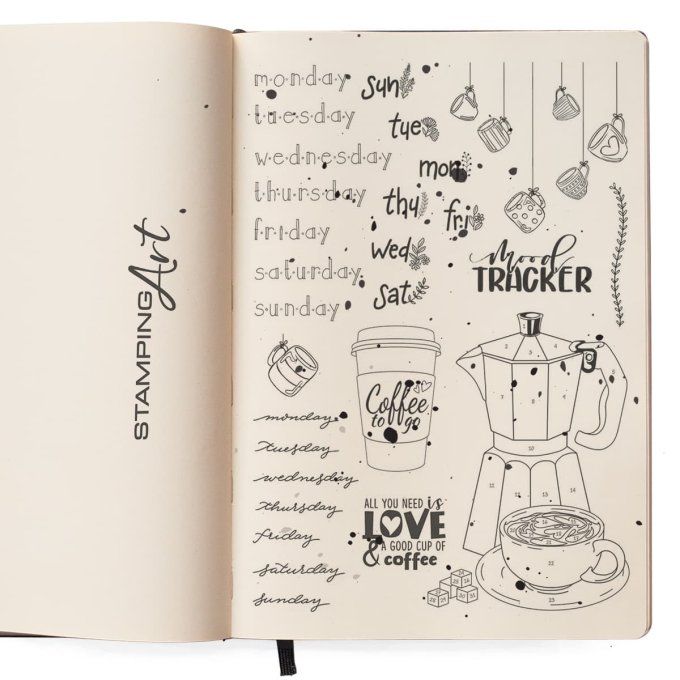 STAMPING Art
monday
tuesday
wednesday
thursday
friday
saturday
sunday
sun
tue
mon
thu
fri
wed
sat
mood
TRACKER
Coffee
to go
monday
tuesday
wednesday
thursday
friday
saturday
sunday
ALL YOU NEED is
LOVE
& A GOOD CUP OF
coffee
2 3
10
11 12
22
23
28 29 30 31